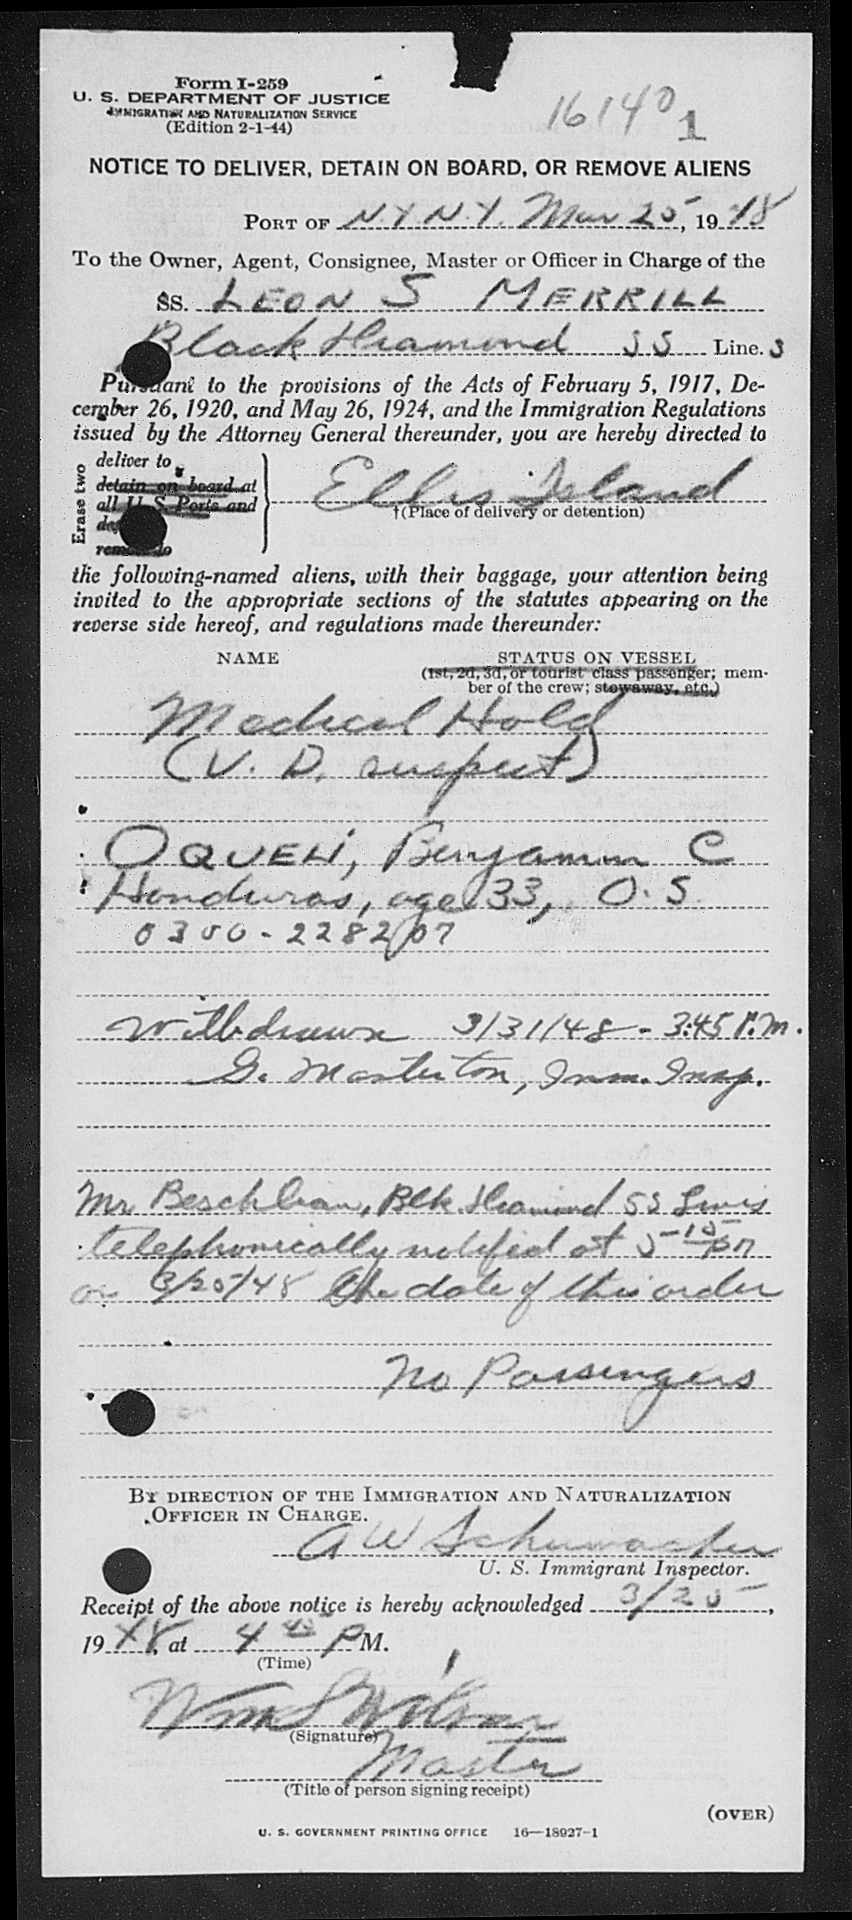 Form I-259
U. S. DEPARTMENT OF JUSTICE
IMMIGRATION AND NATURALIZATION SERVICE
(Edition 2-1-44)
16140 1
NOTICE TO DELIVER, DETAIN ON BOARD, OR REMOVE ALIENS
PORT OF N.Y. N.Y. Mar 25, 1948
To the Owner, Agent, Consignee, Master or Officer in Charge of the
SS. LEON S MERRILL
Black Diamond SS Line. 3
Pursuant to the provisions of the Acts of February 5, 1917, De-
cember 26, 1920, and May 26, 1924, and the Immigration Regulations
issued by the Attorney General thereunder, you are hereby directed to
Erase two
deliver to
detain on board at
all U S Ports and
Ellis Island
†(Place of delivery or detention)
the following-named aliens, with their baggage, your attention being
invited to the appropriate sections of the statutes appearing on the
reverse side hereof, and regulations made thereunder:
NAME STATUS ON VESSEL
(1st, 2d, 3d, or tourist class passenger; mem-
ber of the crew; stowaway, etc.)
Medical Hold
(V. D. suspect)
OQUELI, Benjamin C
Honduras, age 33, O.S.
0300-2282107
Withdrawn 3/31/48 - 3:45 P.M.
G. Masterton, Imm. Insp.
Mr , Blk Diamond SS Lines
telephonically notified at 5 15 pm
on 3/25/48 the date of this order
No Passengers
BY DIRECTION OF THE IMMIGRATION AND NATURALIZATION
OFFICER IN CHARGE.
A W Schumacher
U. S. Immigrant Inspector.
Receipt of the above notice is hereby acknowledged 3/25,
1948, at 4 45 PM.
(Time)
Wm S Wilson
(Signature)
Master
(Title of person signing receipt)
(OVER)
U. S. GOVERNMENT PRINTING OFFICE 16—18927-1